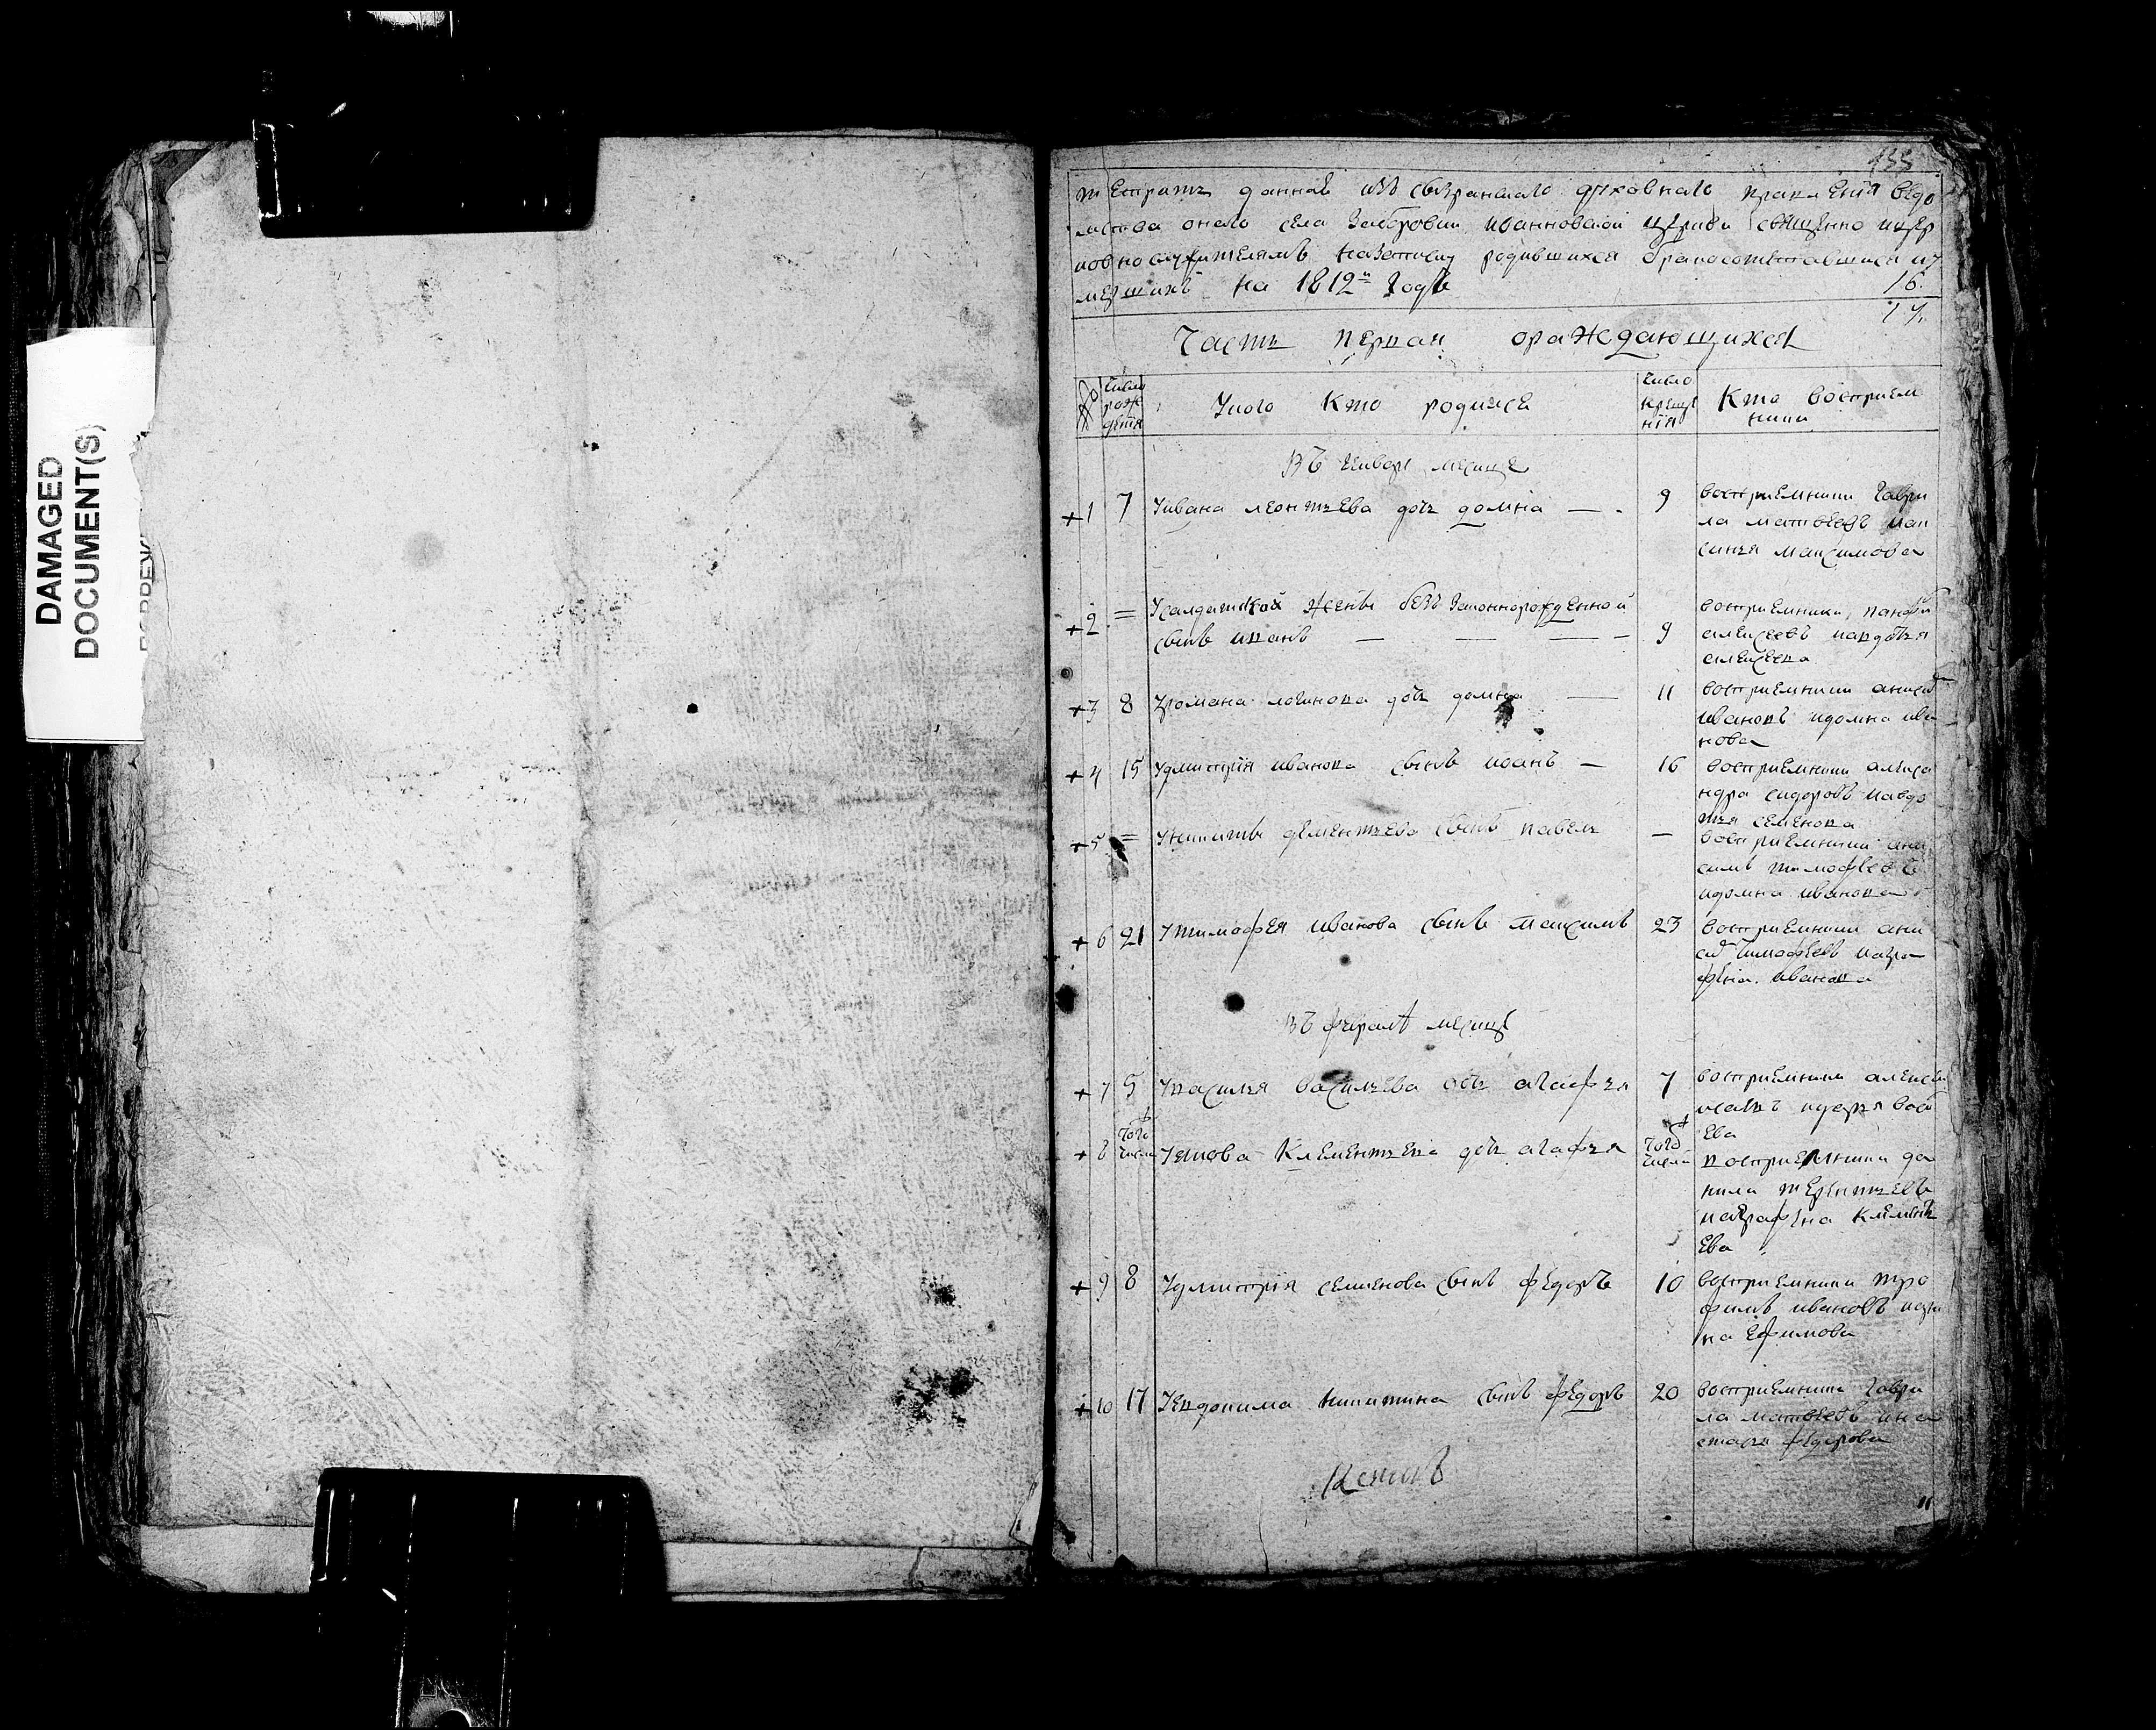 DAMAGED
DOCUMENT(S)
133
тетрать данная изъ сызранскаго духовнаго правления ведо
мства онаго села ивановской церкви священно ицер
ковнослужителямъ назаписку родившихся бракосочетавшихся иу
мершихъ на 1812й годъ
16.
17.
Часть первая ораждающихся
№
число
рож
дения
Укого Кто родился
число
креще
ния
Кто восприем
ники
Въ генваре месяце
+1 7 Уивана леонтьева дочь домна 9
восприемники гаври
ла матвеевъ иак
синья максимова
+2 = Усалдатской жены незаконнорожденной
сынъ иванъ 9
восприемники
алексеевъ иавдотья
алексеева
+3 8 Уромана логинова дочь домна 11
восприемники
ивановъ идомна ива
нова
+4 15 Удмитрия иванова сынъ иванъ 16
восприемники алекса
ндра сидоровъ иавдо
тья семенова
+5 = Уникиты дементьева сынъ павелъ
восприемники ани
симъ тимофеевъ
идомна иванова
+6 21 Утимофея иванова сынъ максимъ 23
восприемники ани
симъ тимофеевъ иагра
фена иванова
Въ феврале месяце
+7 5 Увасилья васильева дочь агафья 7
восприемники алексей
+8 того числа Уякова клементьева дочь агафья того числа
ева
восприемники да
нила терентьевъ
иаграфена клементь
ева
+9 8 Удмитрия семенова сынъ федоръ 10
восприемники тро
фимъ ивановъ
на ефимова
+10 17 Уевдокима никитина сынъ федоръ 20
восприемники гаври
ла матвеевъ ина
стасья федорова
11